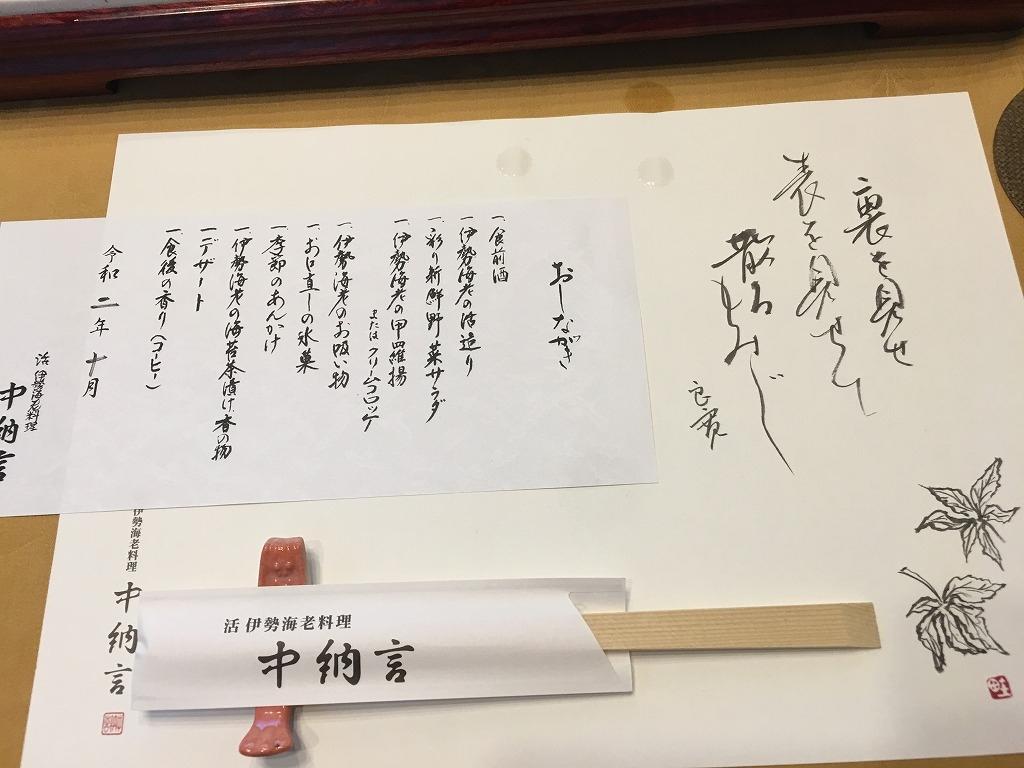 裏を見せ
表を見せて
散るもみじ
良寛
おしながき
一、食前酒
一、伊勢海老の活造り
一、彩り新鮮野菜サラダ
一、伊勢海老の甲羅揚
またはクリームコロッケ
一、伊勢海老のお吸い物
一、お口直しの氷菓
一、季節のあんかけ
一、伊勢海老の海苔茶漬け 香の物
一、デザート
一、食後の香り(コーヒー)
令和 二年 十月
活 伊勢海老料理
中納言
伊勢海老料理
中納言
活 伊勢海老料理
中納言